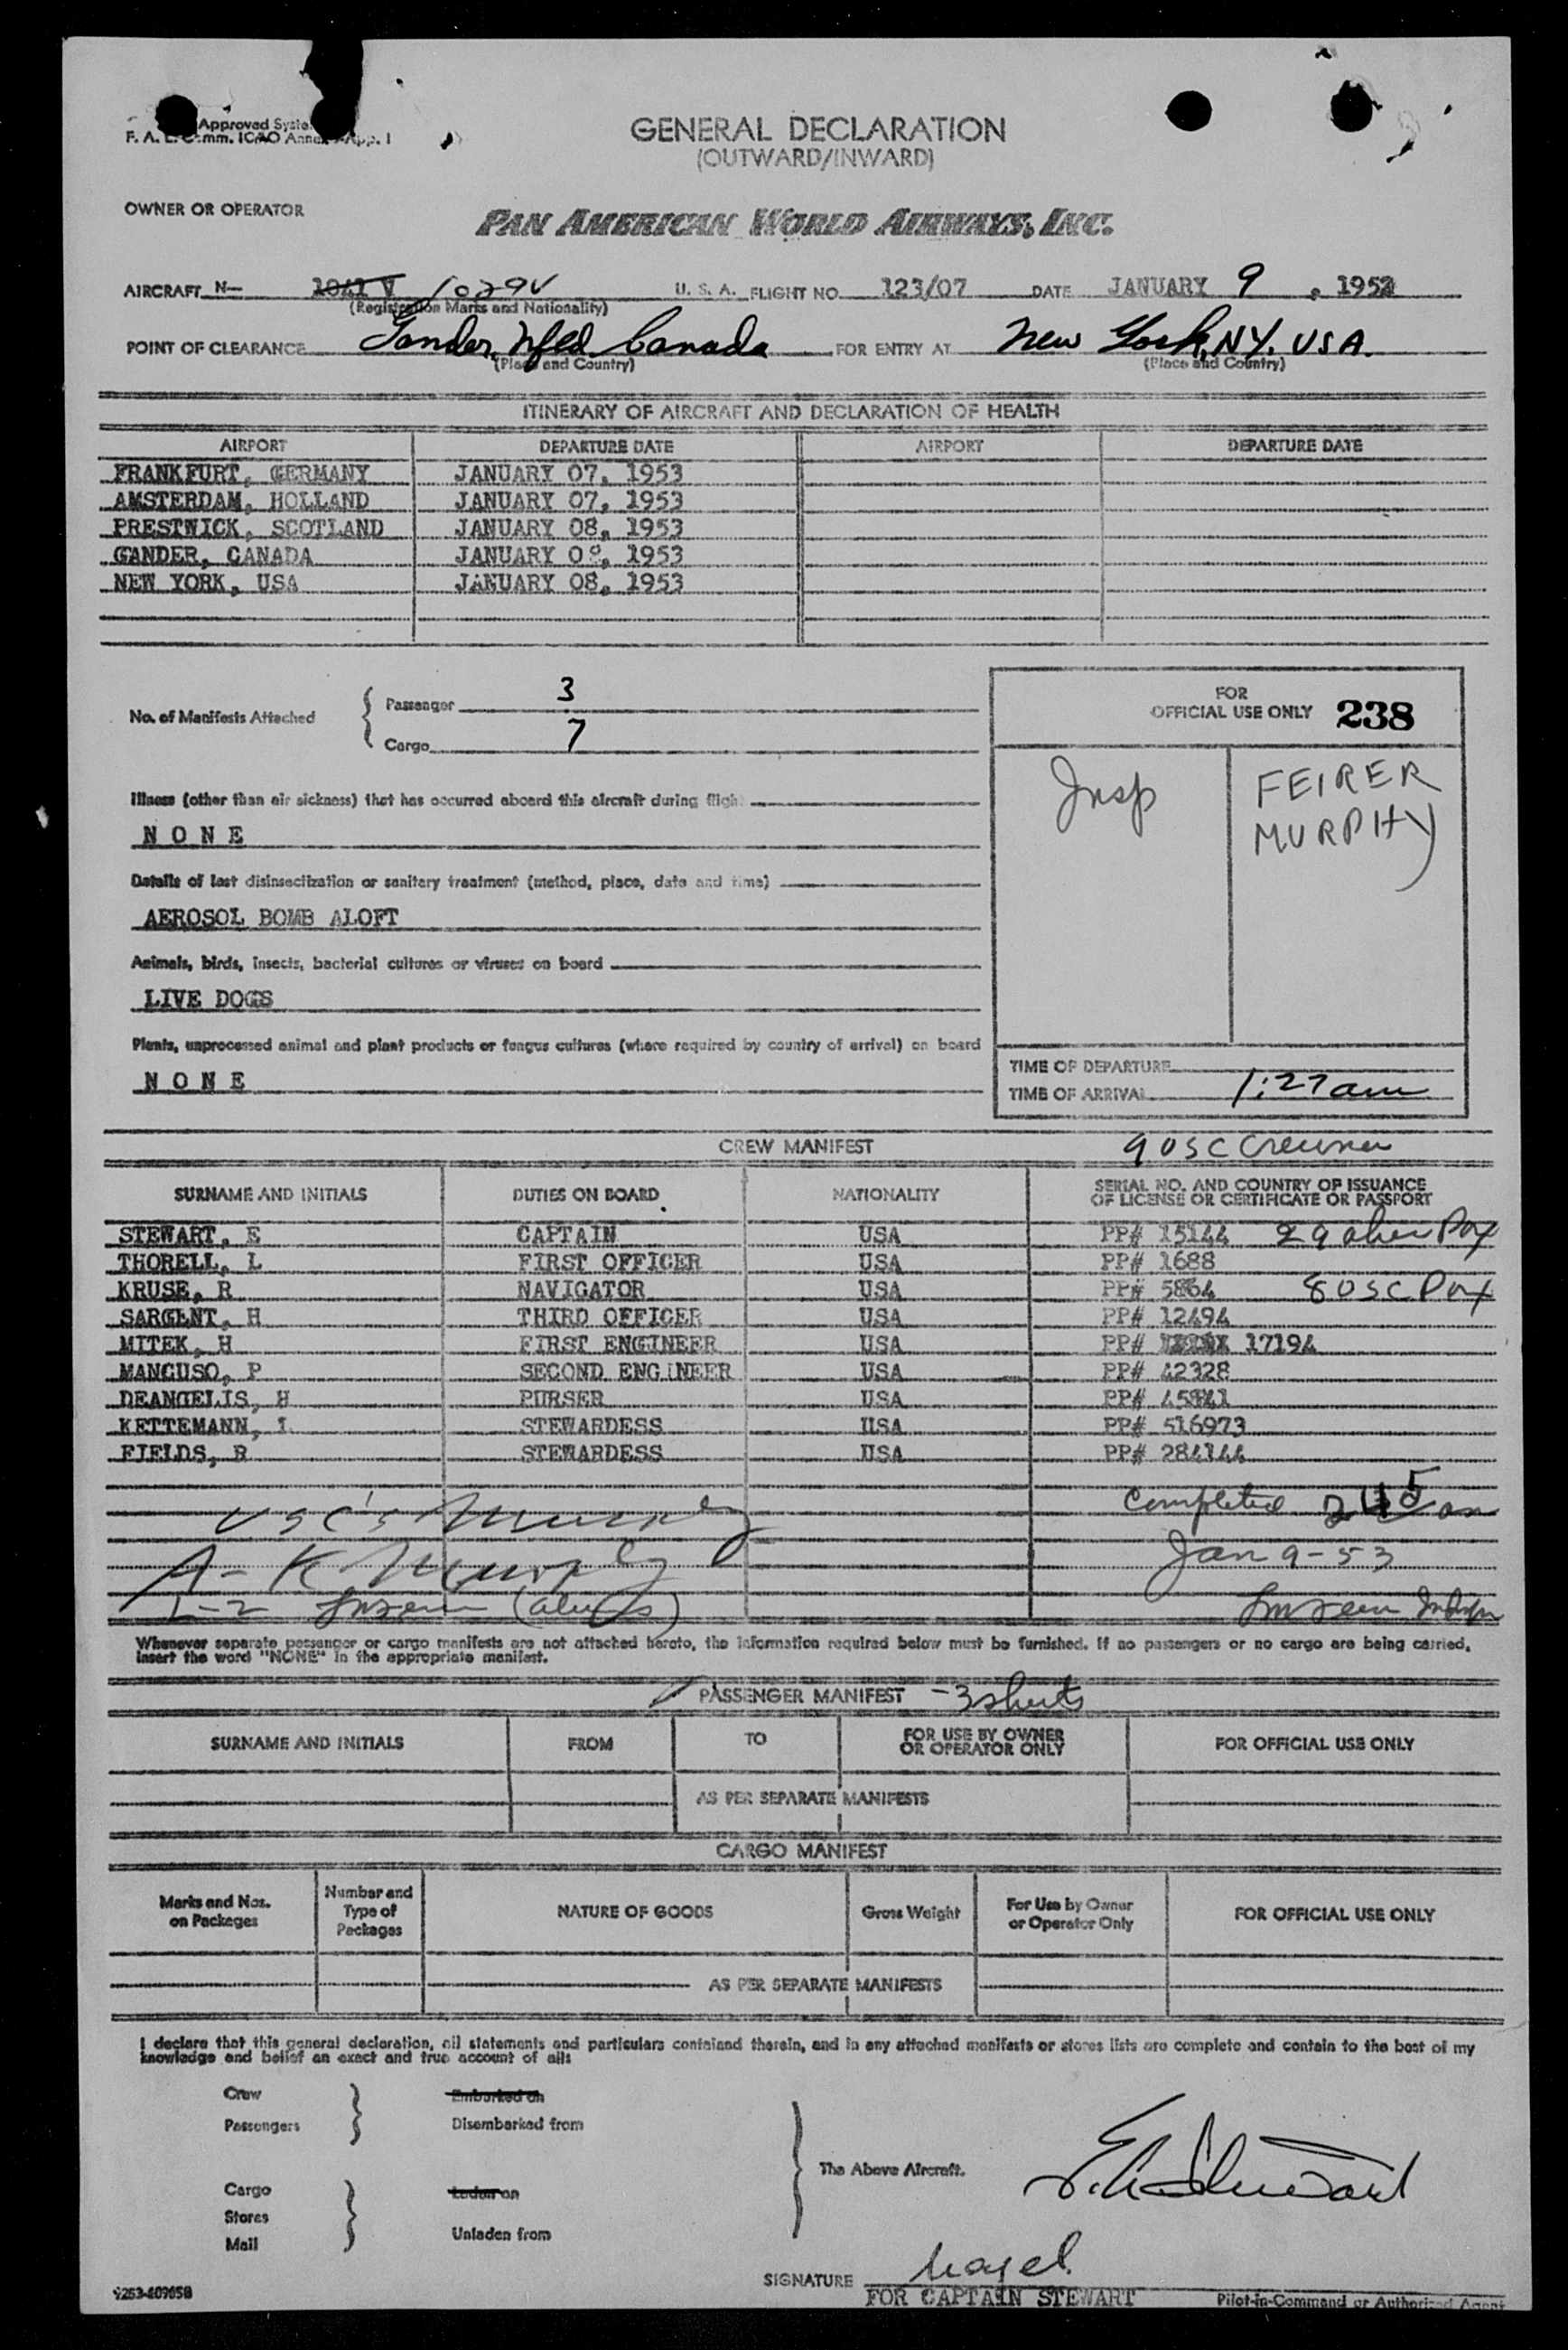 Approved Syste
F. A. L. Comm. ICAO Annex App. I
GENERAL DECLARATION
(OUTWARD/INWARD)
OWNER OR OPERATOR
PAN AMERICAN WORLD AIRWAYS, INC.
AIRCRAFT N- 1041 V 1029V U. S. A. FLIGHT NO. 123/07 DATE JANUARY 9, 1953
(Registration Marks and Nationality)
POINT OF CLEARANCE Gander, Nfld Canada FOR ENTRY AT New York, NY. USA.
(Place and Country) (Place and Country)
ITINERARY OF AIRCRAFT AND DECLARATION OF HEALTH
AIRPORT DEPARTURE DATE AIRPORT DEPARTURE DATE
FRANKFURT, GERMANY JANUARY 07, 1953
AMSTERDAM, HOLLAND JANUARY 07, 1953
PRESTWICK, SCOTLAND JANUARY 08, 1953
GANDER, CANADA JANUARY 1953
NEW YORK, USA JANUARY 08, 1953
No. of Manifests Attached
Passenger 3
Cargo 7
FOR
OFFICIAL USE ONLY 238
Insp FEIRER
MURPHY
Illness (other than air sickness) that has occurred aboard this aircraft during flight
NONE
Details of last disinsectization or sanitary treatment (method, place, date and time)
AEROSOL BOMB ALOFT
Animals, birds, insects, bacterial cultures or viruses on board
LIVE DOGS
Plants, unprocessed animal and plant products or fungus cultures (where required by country of arrival) on board
NONE
TIME OF DEPARTURE
TIME OF ARRIVAL 1:27 am
CREW MANIFEST 9 USC Crewmen
SURNAME AND INITIALS DUTIES ON BOARD NATIONALITY SERIAL NO. AND COUNTRY OF ISSUANCE
OF LICENSE OR CERTIFICATE OR PASSPORT
STEWART, E CAPTAIN USA PP# 15144 29 alien Pax
THORELL, L FIRST OFFICER USA PP# 1688
KRUSE, R NAVIGATOR USA PP# 5864 8 USC Pax
SARGENT, H THIRD OFFICER USA PP# 12494
MITEK, H FIRST ENGINEER USA PP# 17194
MANCUSO, P SECOND ENGINEER USA PP# 42328
DEANGELIS, H PURSER USA PP#
KETTEMANN, I STEWARDESS USA PP# 516973
FIELDS, R STEWARDESS USA PP# 284144
USC's Murphy Completed 245 am
A- K. Murphy Jan 9-53
1-2 (aliens)
Whenever separate passenger or cargo manifests are not attached hereto, the information required below must be furnished. If no passengers or no cargo are being carried,
insert the word "NONE" in the appropriate manifest.
PASSENGER MANIFEST - 3 sheets
SURNAME AND INITIALS FROM TO FOR USE BY OWNER
OR OPERATOR ONLY FOR OFFICIAL USE ONLY
AS PER SEPARATE MANIFESTS
CARGO MANIFEST
Marks and Nos.
on Packages Number and
Type of
Packages NATURE OF GOODS Gross Weight For Use by Owner
or Operator Only FOR OFFICIAL USE ONLY
AS PER SEPARATE MANIFESTS
I declare that this general declaration, all statements and particulars contained therein, and in any attached manifests or stores lists are complete and contain to the best of my
knowledge and belief an exact and true account of all:
Crew Embarked on
Passengers Disembarked from
The Above Aircraft.
Cargo Laden on
Stores
Mail Unladen from
SIGNATURE
FOR CAPTAIN STEWART Pilot-in-Command or Authorized Agent